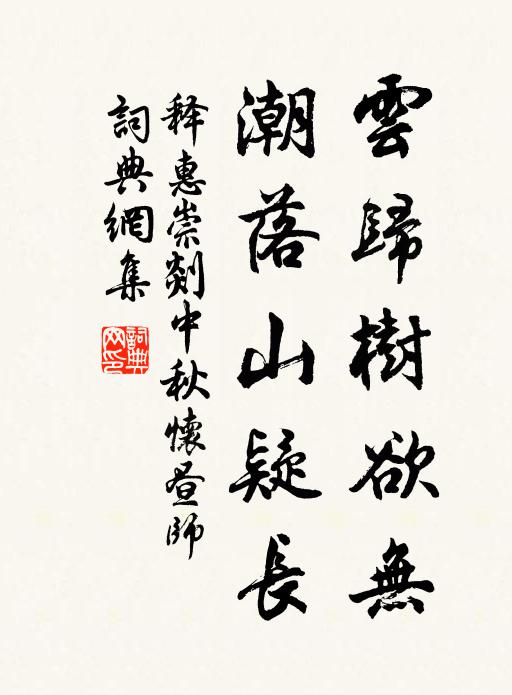 雲歸樹欲無
潮落山疑長
释惠崇剡中秋懷昼師
詞典網集
詞典網印